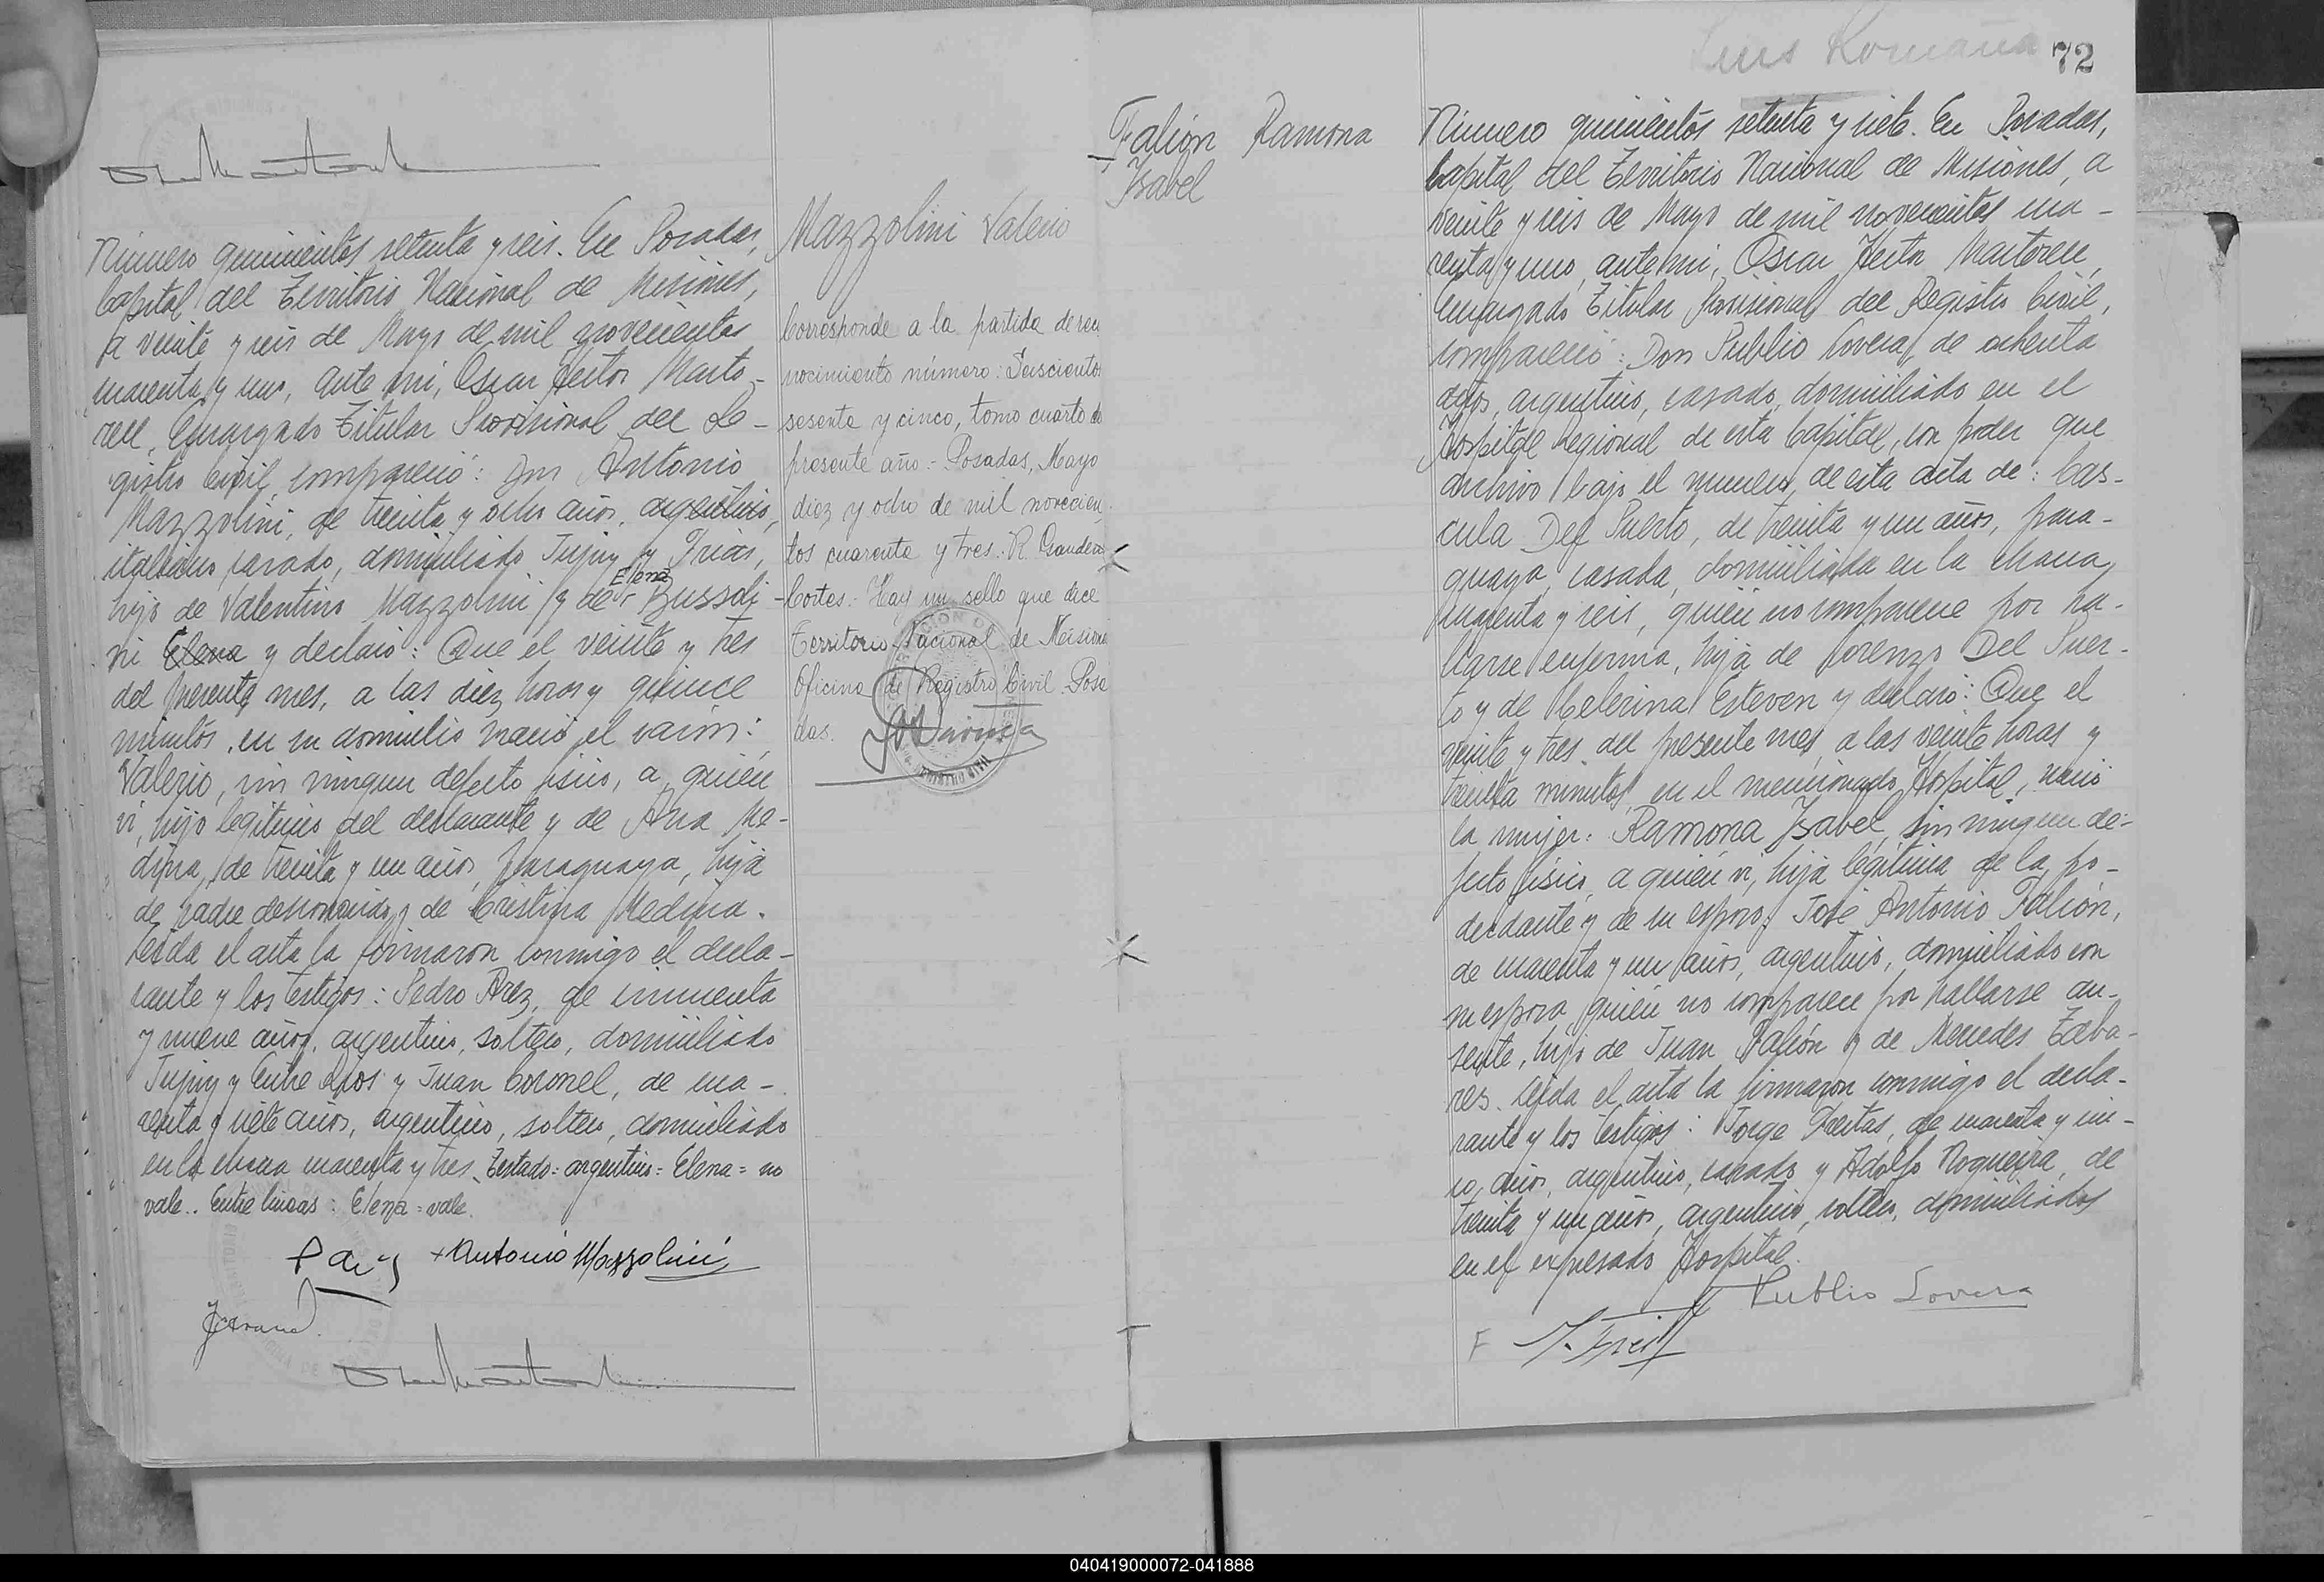 Número quinientos setenta y seis. En Posadas,
Capital del Territorio Nacional de Misiones,
a veinte y seis de Mayo de mil novecientos
cuarenta y uno, ante mi, Oscar Héctor Marto-
rell, Encargado Titular Provisional del Re-
gistro Civil, compareció: Don Antonio
Mazzolini, de treinta y ocho años, argentino,
italiano, casado, domiciliado Jujuy y Frias,
hijo de Valentino Mazzolini y de Elena Bussoli-
ni Elena y declaró: Que el veinte y tres
del presente mes, a las diez horas y quince
minutos, en su domicilio nació el varón:
Valerio, sin ningun defecto físico, a quién
vi, hijo legítimo del declarante y de Ana Me-
dina, de treinta y un años, paraguaya, hija
de padre desconocido y de Cristina Medina.
Leida el acta la firmaron conmigo el decla-
rante y los testigos: Pedro Arez, de cincuenta
y nueve años, argentino, soltero, domiciliado
Jujuy y Entre Rios y Juan Coronel, de cua-
renta y siete años, argentino, soltero, domiciliado
en la chacra cuarenta y tres. Testado: argentino = Elena = no
vale.. Entre lineas: Elena = vale.
+ Antonio Mazzolini
Mazzolini Valerio
Corresponde a la partida de reco
nocimiento número: Seiscientos
sesenta y cinco, tomo cuarto del
presente año.- Posadas, Mayo
diez y ocho de mil novecien
tos cuarenta y tres.- R.
Cortes.- Hay un sello que dice
Territorio Nacional de Misiones
Oficina de Registro Civil. Posa
das.
REGISTRO CIVIL
Luis Romaña
72
Falión Ramona
Isabel
Número quinientos setenta y siete. En Posadas,
Capital del Territorio Nacional de Misiones, a
veinte y seis de Mayo de mil novecientos cua-
renta y uno, ante mi, Oscar Héctor Martorell,
Encargado Titular Provisional del Registro Civil,
compareció: Don Publio Lovera, de ochenta
años, argentino, casado, domiciliado en el
Hospital Regional de esta Capital, con poder que
archivo bajo el número de esta acta de: Cas-
cula Del Puerto, de treinta y un años, para-
guaya, casada, domiciliada en la chacra
cuarenta y seis, quién no comparece por ha-
llarse enferma, hija de Lorenzo Del Puer-
to y de Celerina Esteven y declaró: Que el
veinte y tres del presente mes, a las veinte horas y
treinta minutos, en el mencionado Hospital, nació
la mujer: Ramona Isabel, sin ningun de-
fecto físico, a quién vi, hija legítima de la po-
derdante y de su esposo, José Antonio Falión,
de cuarenta y un años, argentino, domiciliado con
su esposa quién no comparece por hallarse au-
sente, hijo de Juan Falión y de Mercedes Taba-
res. Leida el acta la firmaron conmigo el decla-
rante y los testigos: Jorge Freitas, de cuarenta y cin-
co años, argentino, casado y Adolfo Nogueira, de
treinta y un años, argentino, soltero, domiciliados
en el expresado Hospital.
Publio Lovera
F
040419000072-041888